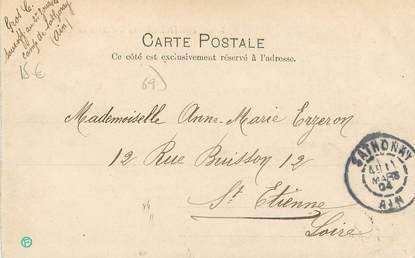 CARTE POSTALE
Ce côté est exclusivement réservé à l'adresse.
camp de Sathonay
(Ain)
15 €
69
Mademoiselle Anne-Marie Erzeron
12 Rue Buisson 12
St Etienne
Loire
SATHONAY
11
MARS
04
AIN